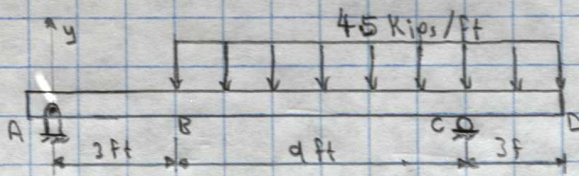 y
4.5 Kips/ft
A B C D
3 ft 9 ft 3 f